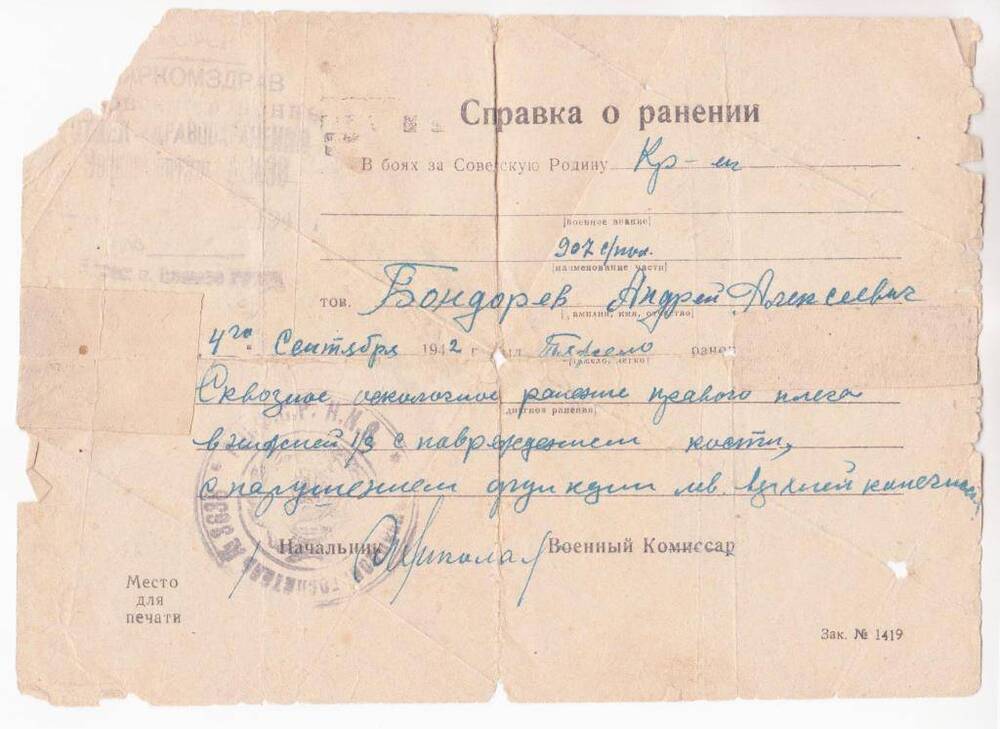 НАРКОМЗДРАВ
Справка о ранении
В боях за Советскую Родину Кр-ц
[военное звание]
907 с/пол.
[наименование части]
тов. Бондарев Андрей Алексеевич
[фамилия, имя, отчество]
4го Сентября 1942 г. был Тяжело ранен
[тяжело, легко]
Сквозное осколочное ранение правого плеча
[диагноз ранения]
в нижней 1/3 с повреждением кости,
с нарушением функции верхней конечности
Начальник Военный Комиссар
Место
для
печати
ГОСПИТАЛЬ № 3639
Зак. № 1419